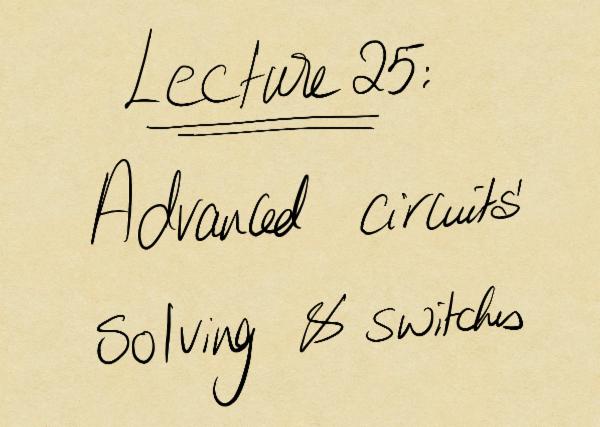 Lecture 25:
Advanced circuits'
solving & switches